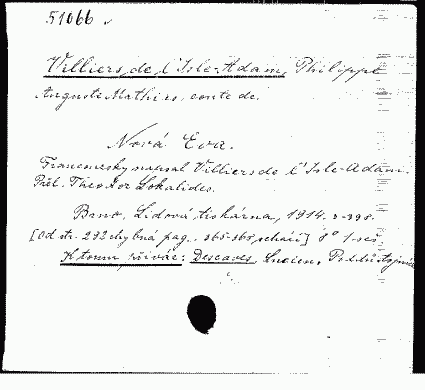 51066
Villiers de l'Isle-Adam, Philippe
Auguste Mathias, conte de.
Nová Eva.
Francouzsky napsal Villiers de l'Isle-Adam.
Přel. Theodor Lokalides.
Brno, Lidová tiskárna, 1914. 3-398.
[Od str. 232 chybná pag., 365-368 schází] 8° 1-seš.
K tomu přiváz: Descaves, Lucien, Poddůstojníci